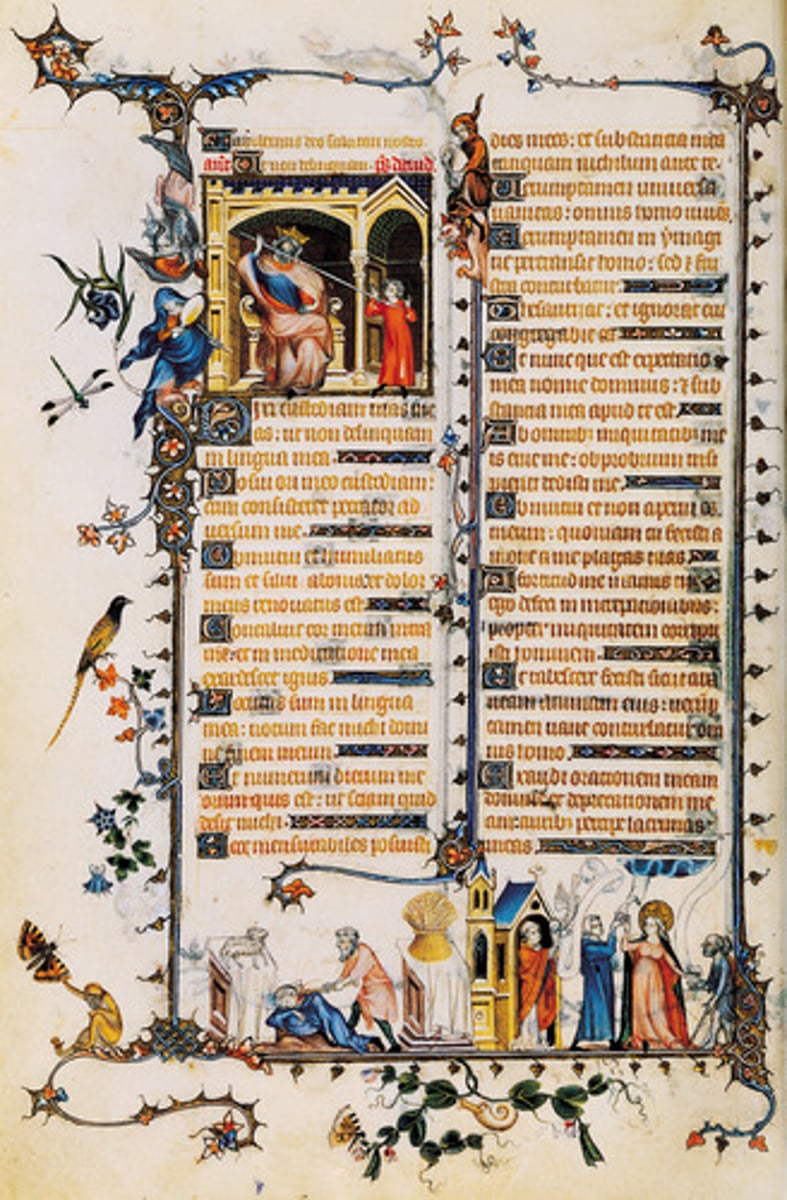 deo salutari nostro
Ut non delinquam. dauid
Dixi custodiam uias me
as: ut non delinquam
in lingua mea.
Posui ori meo custodiam:
cum consisteret peccator ad
uersum me.
Obmutui et humiliatus
sum et silui a bonis: et dolor
meus renouatus est.
Concaluit cor meum intra
me: et in meditatione mea
exardescet ignis.
Locutus sum in lingua
mea: notum fac michi domi
ne finem meum.
Et numerum dierum me
orum quis est: ut sciam quid
desit michi.
Ecce mensurabiles posuisti
dies meos: et substantia mea
tanquam nichilum ante te.
Uerumptamen uniuersa
uanitas: omnis homo
Uerumptamen in ymagi
ne pertransit homo: sed
conturbatur.
Thesaurizat: et ignorat cui
congregabit ea.
Et nunc que est expectatio
mea nonne dominus: et sub
stantia mea apud te est.
Ab omnibus iniquitatibus me
is erue me: obprobrium insi
pienti dedisti me.
Obmutui et non aperui os
meum: quoniam tu fecisti a
moue a me plagas tuas.
A fortitudine manus tue
ego defeci in increpationibus:
propter iniquitatem corripu
isti hominem.
Et tabescere fecisti sicut ara
neam animam eius: uerump
tamen uane conturbatur om
nis homo.
Exaudi orationem meam
domine et deprecationem me
am: auribus percipe lacrimas
meas.